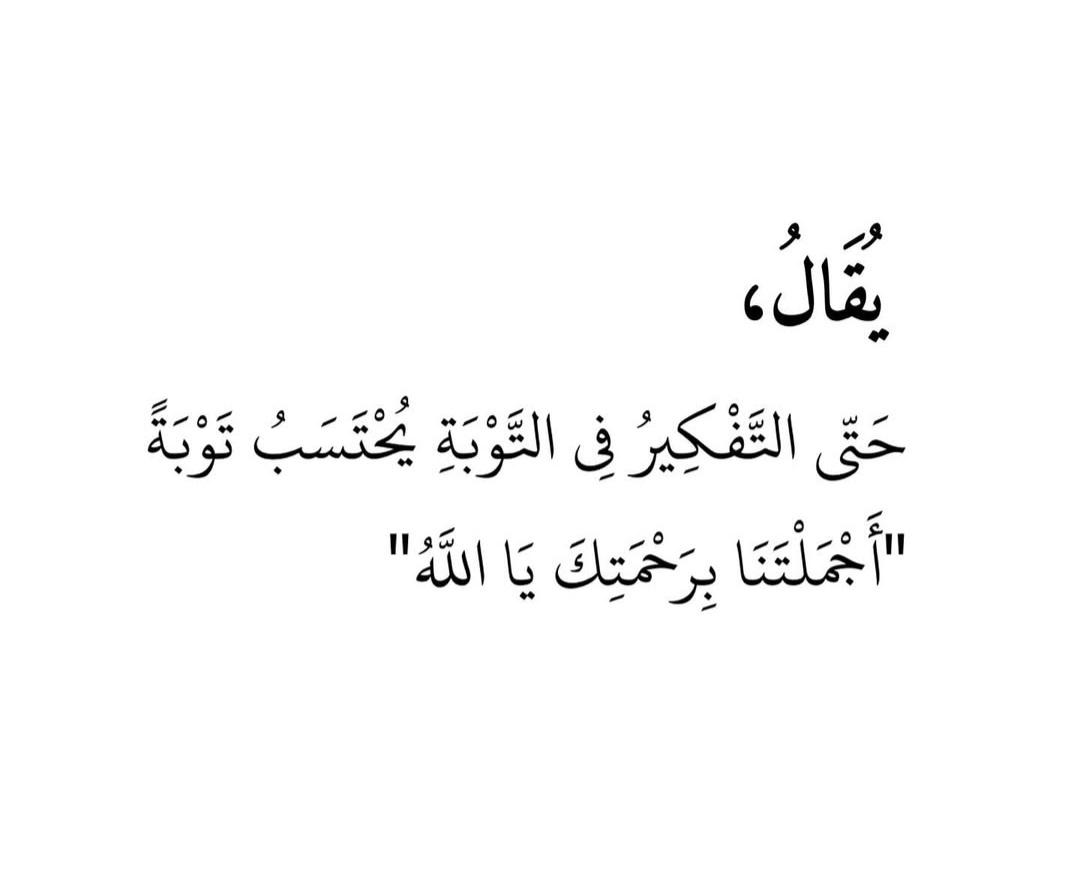 يُقَالُ،
حَتّى التَّفْكِيرُ فِى التَّوْبَةِ يُحْتَسَبُ تَوْبَةً
"أَجْمَلْتَنَا بِرَحْمَتِكَ يَا اللَّهُ"